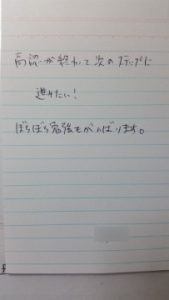 高認が終わって次のステップに
進みたい！
ぼちぼち勉強もがんばります。